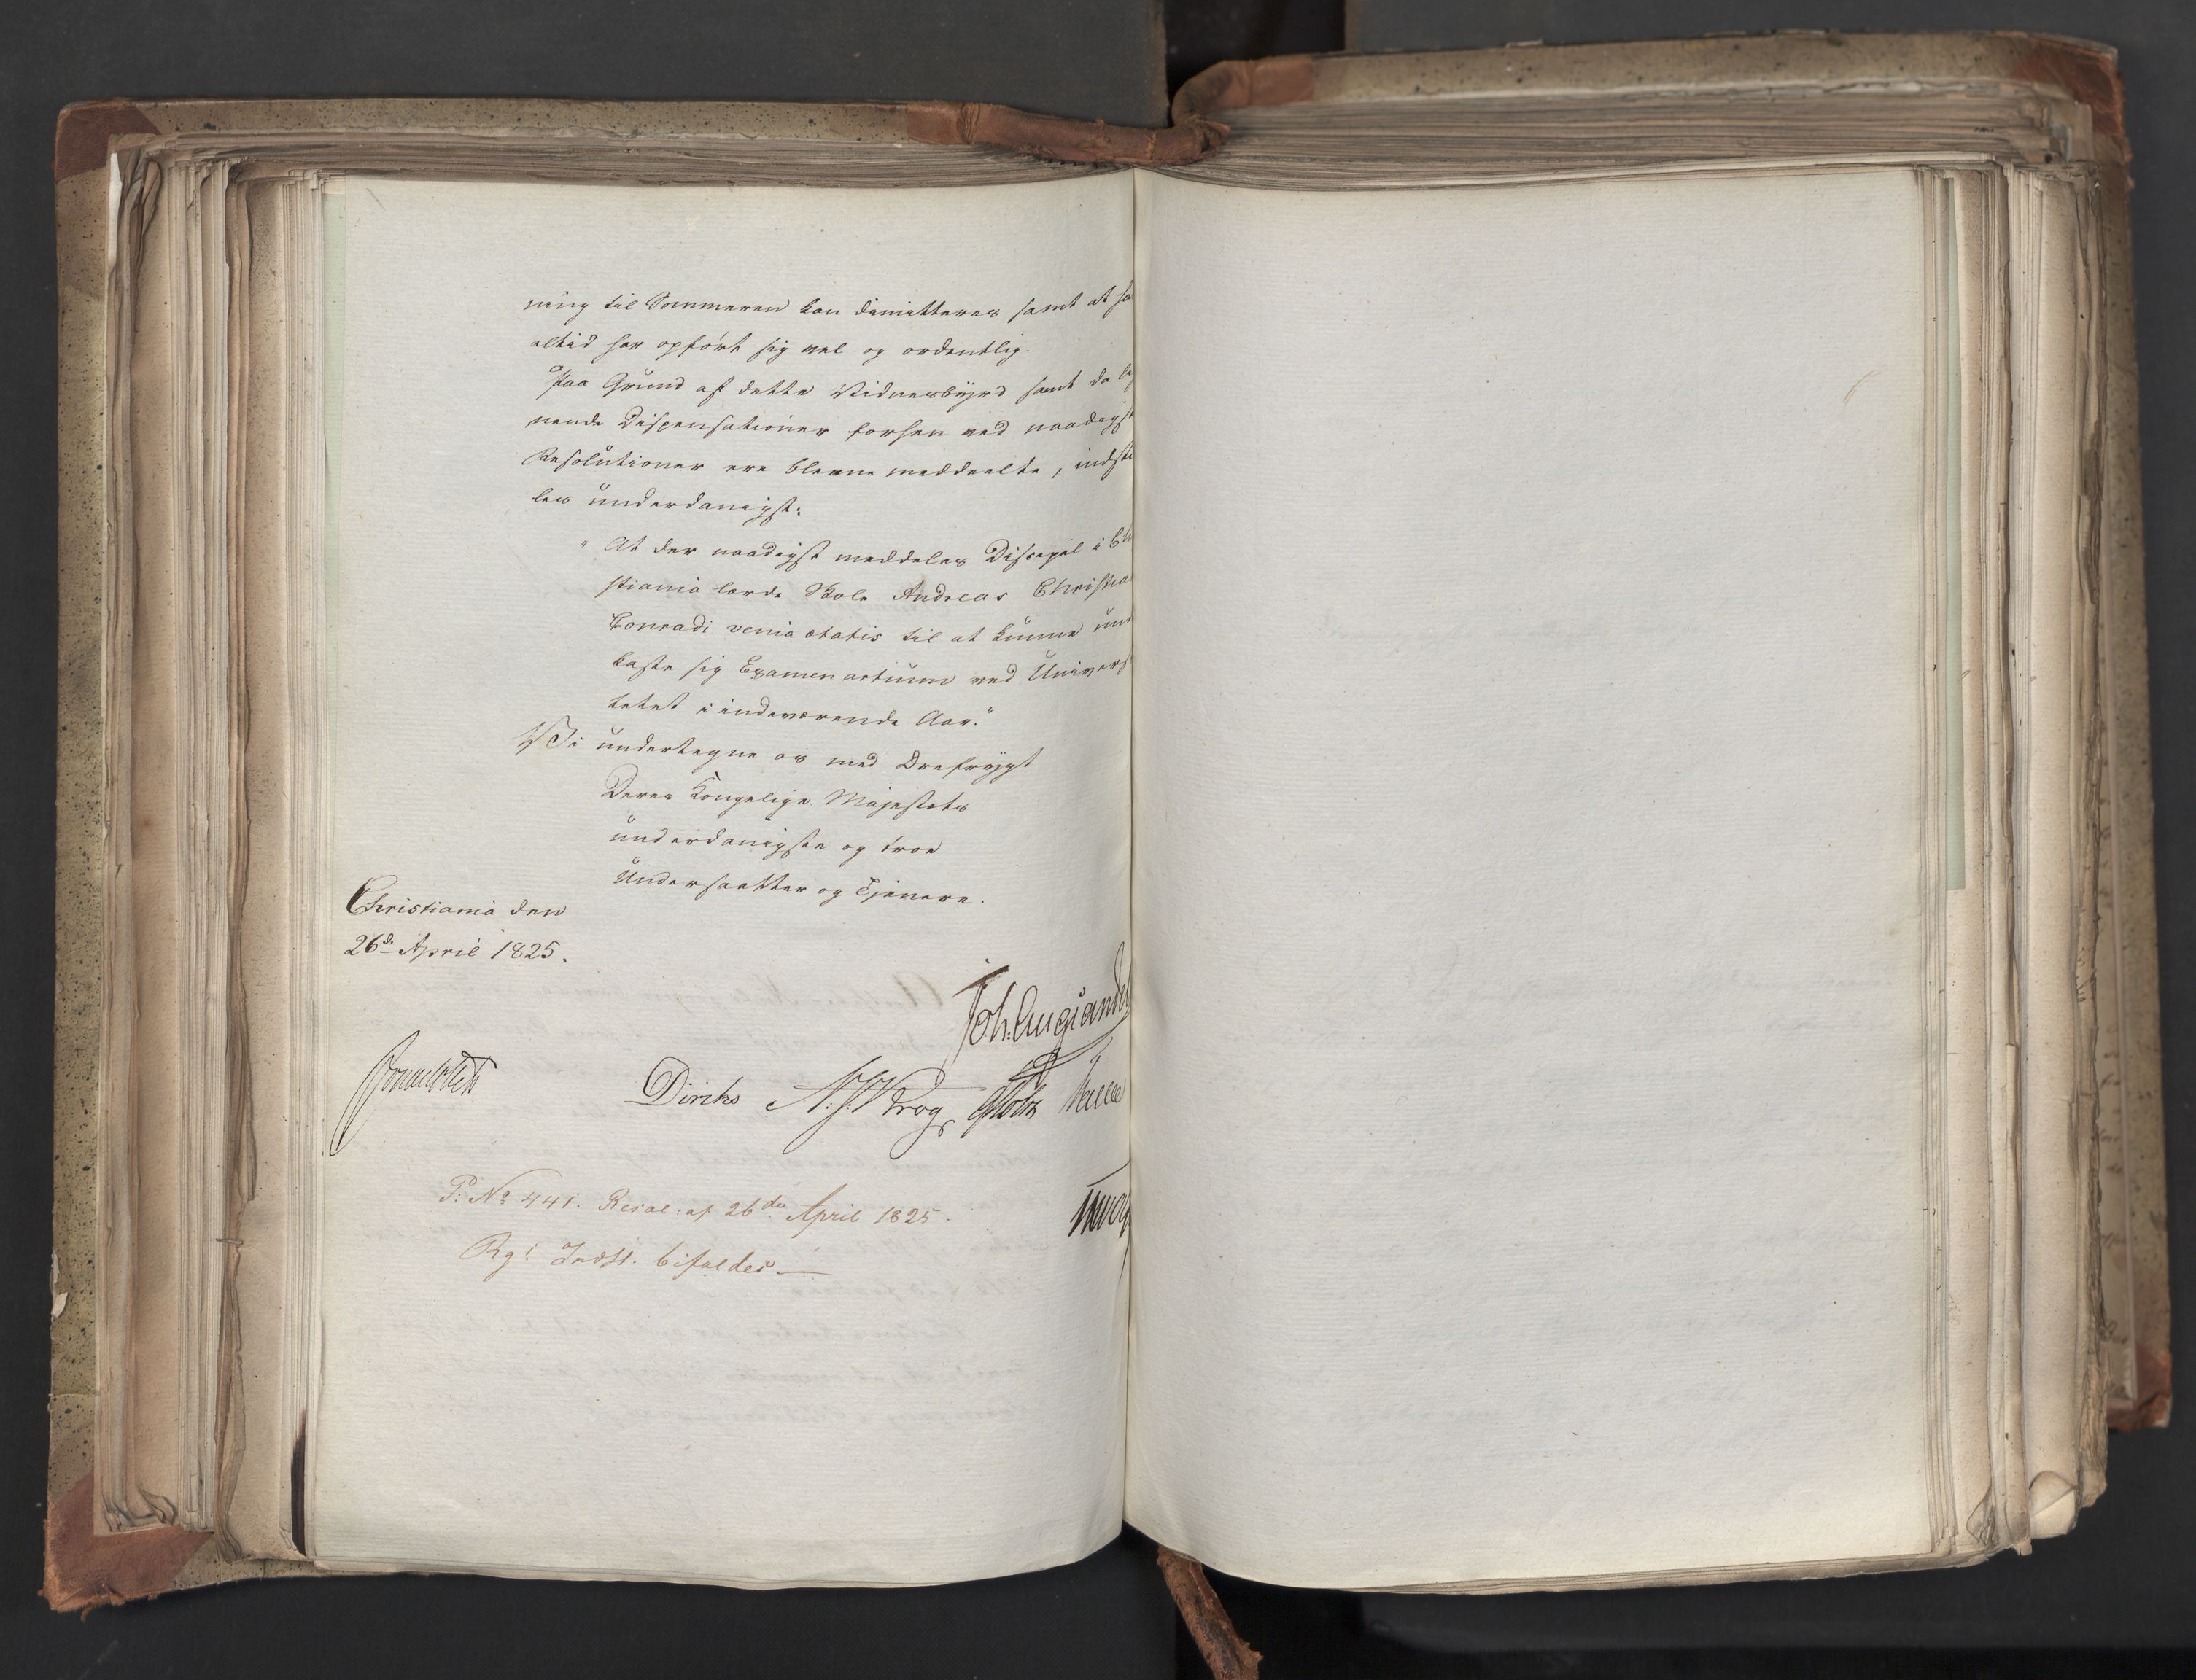 ning til Sommeren kan dimitteres samt at ha
altid har opført sig vel og ordentlig.
Paa Grund af dette Vidnesbyrd samt da lig
nende Dispensationer forhen ved naadigst
Resolutioner ere blevne meddeelte, indstil
les underdanigst:
" At der naadigst meddeles Discipel i Ch
stiania lærde Skole Andreas Christia
Conradi venia ætatis til at kunne und
kaste sig Examen artium ved Univers
tetet i indeværende Aar."
Vi undertegne os med Ærefrygt
Deres Kongelige Majestæts
underdanigste og troe
Undersaatter og Tjenere.
Christiania den
26de April 1825.
Joh. Aug. Sandel
Diriks N. J. Krog Holst
P: No 441. Resol: af 26de April 1825.
Rgs Indst. bifaldes.